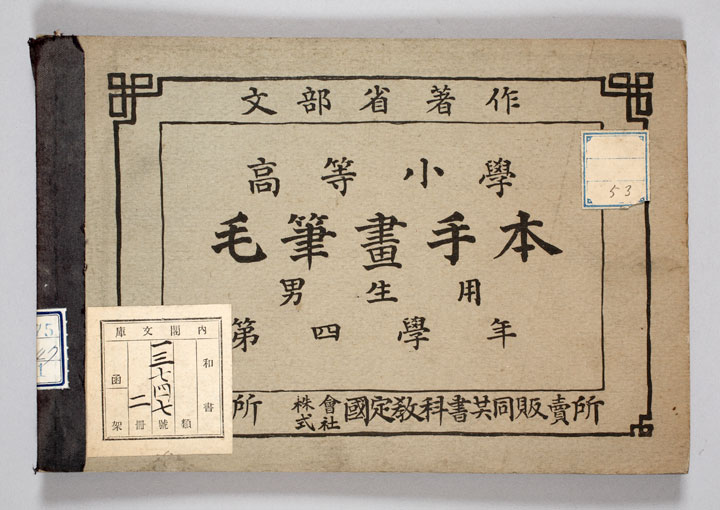 文部省著作
高等小學
毛筆畫手本
男生用
第四學年
所 株式會社 國定敎科書共同販賣所
53
內閣文庫
和書
一三七四七
二
類號冊
函
架